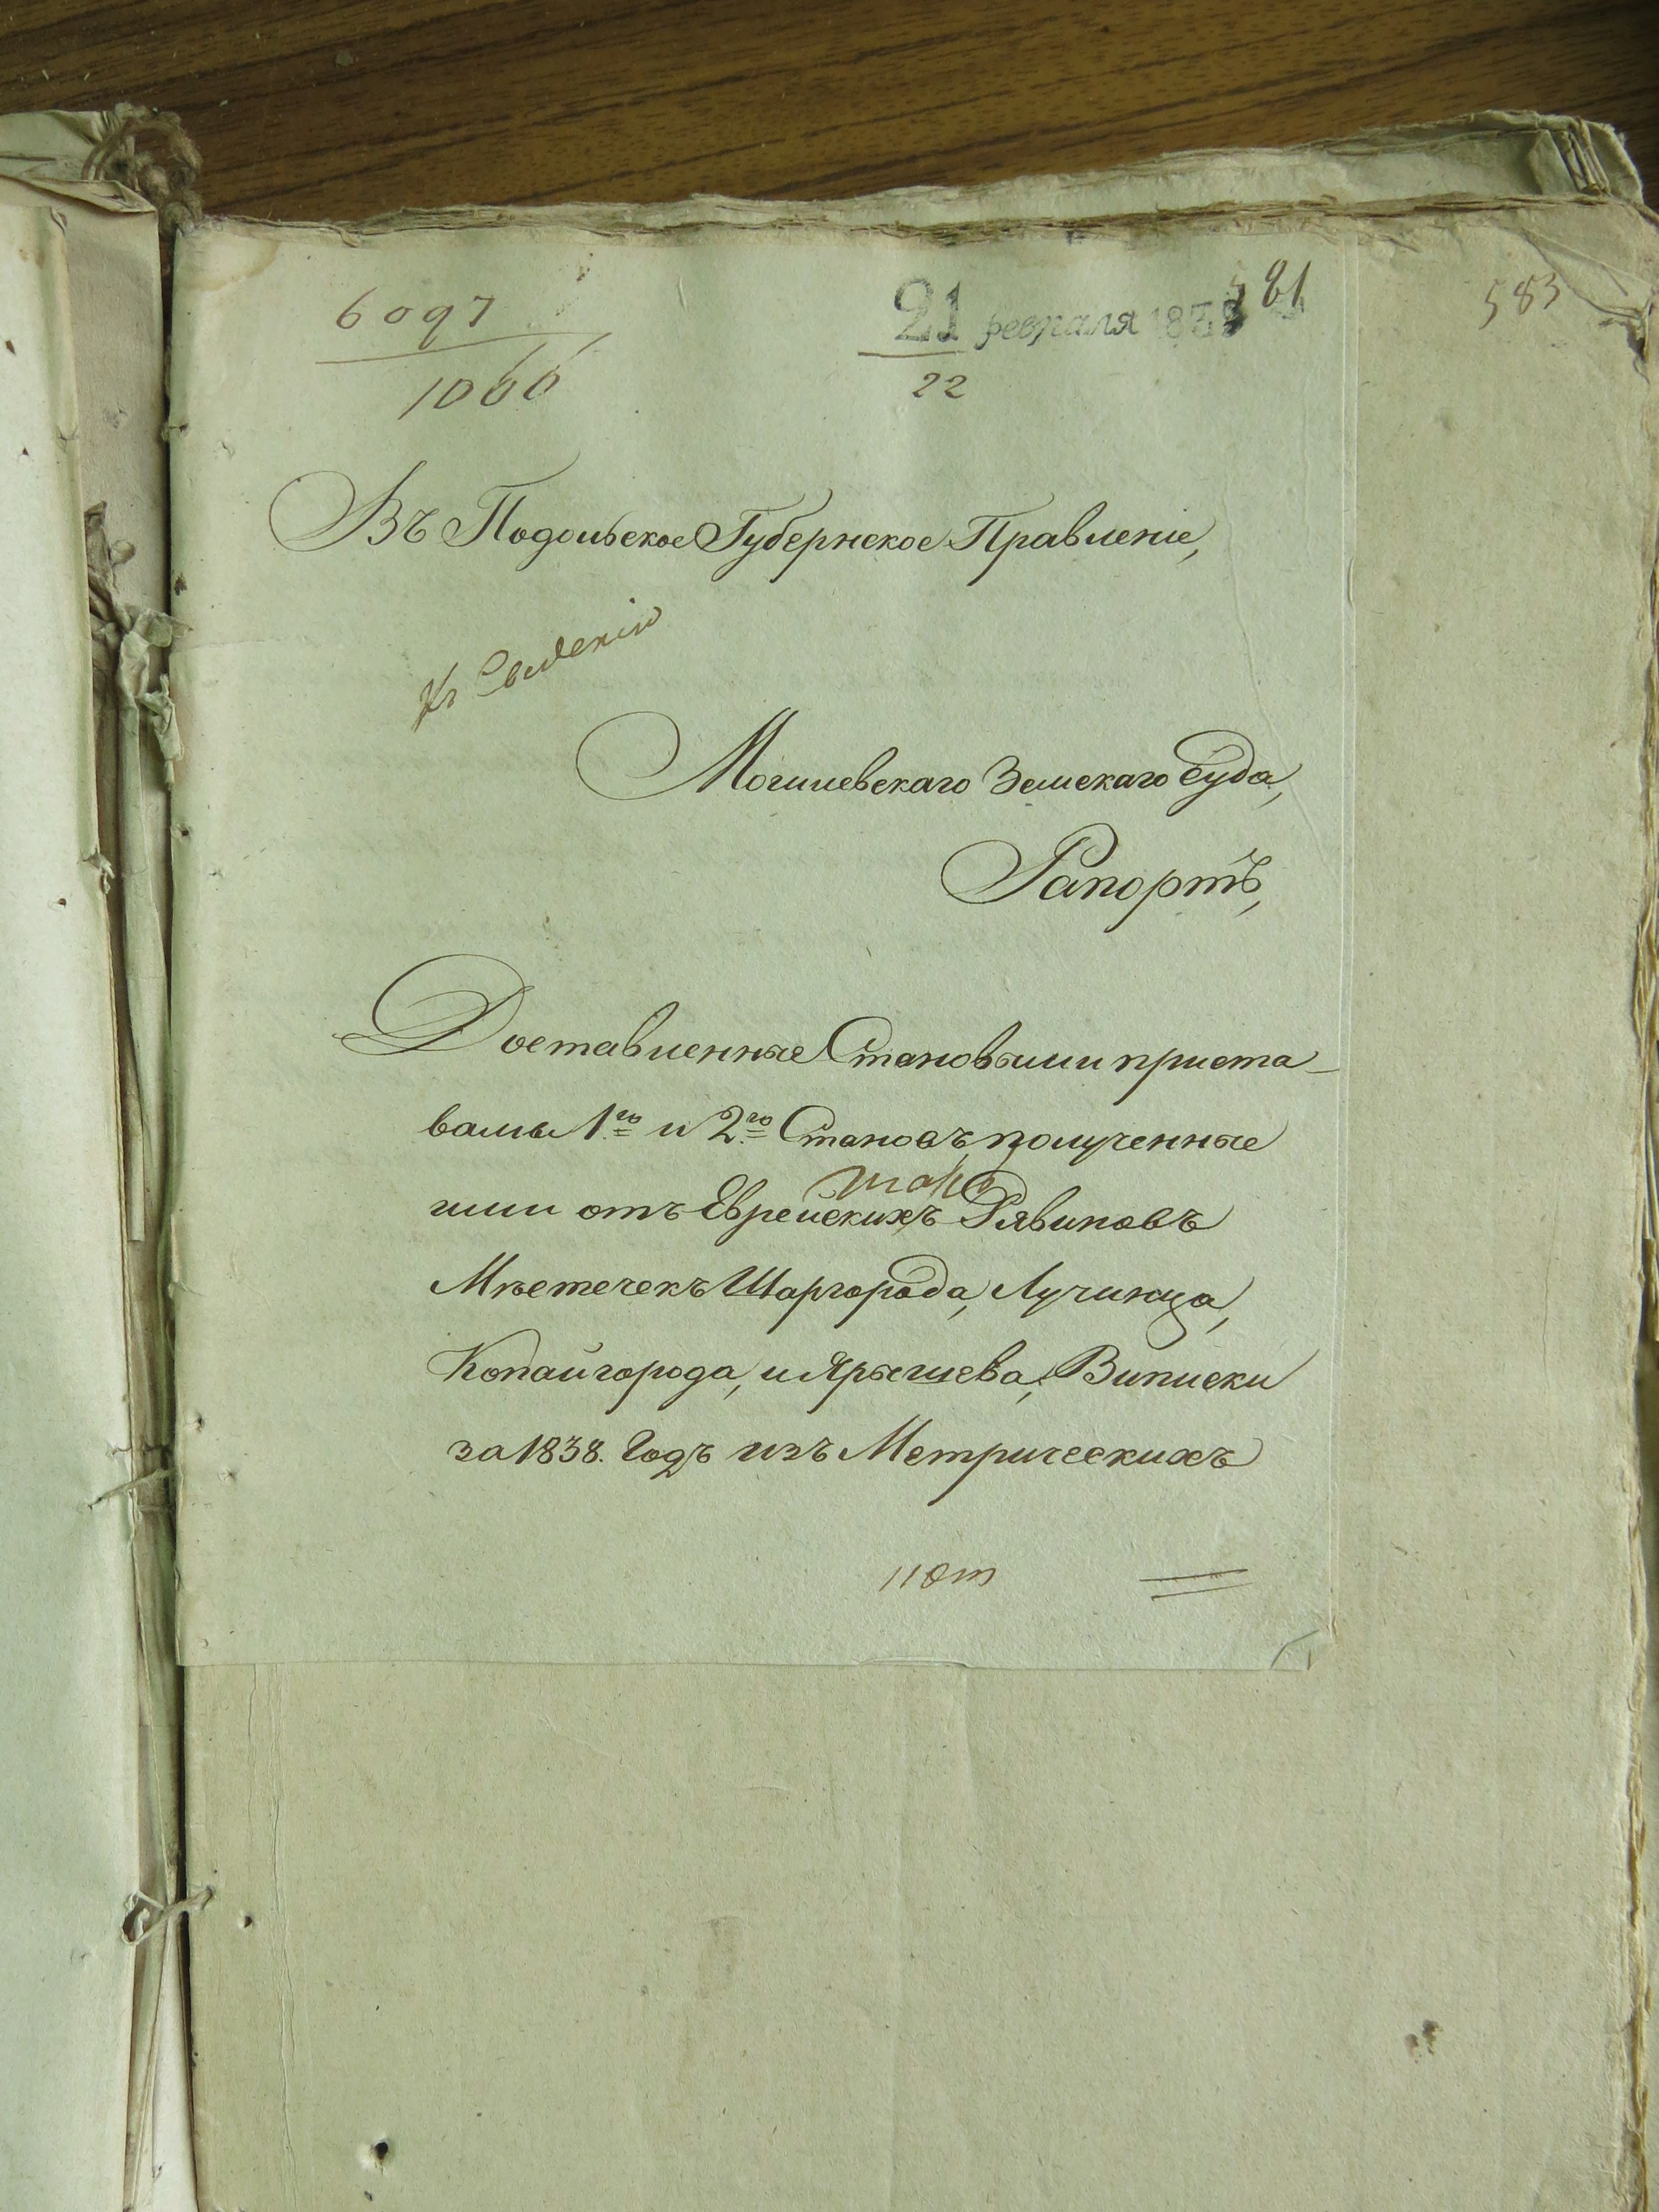 6097
1066
21 февраля 1839
22
581
583
Въ Подольское Губернское Правленіе,
Къ Сведенію
Могилевскаго Земскаго Суда,
Рапортъ,
Доставленные Становыми приста-
вамы 1го и 2го Становъ, полученные
ими отъ Еврейскихъ Рявиновъ
Мѣстечекъ Шаргорода, Лучинца,
Копайгорода, и Ярышева, Виписки
за 1838. Годъ изъ Метрическихъ